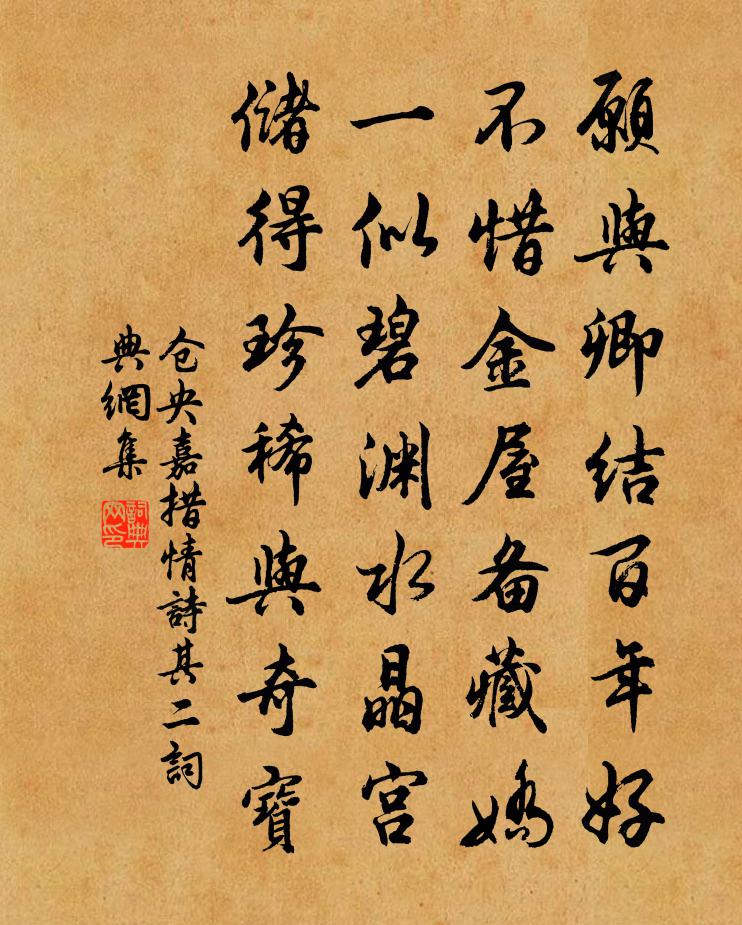 願與卿结百年好
不惜金屋备藏嬌
一似碧渊水晶宫
儲得珍稀與奇寶
仓央嘉措情詩其二詞
典網集
詞典
网印